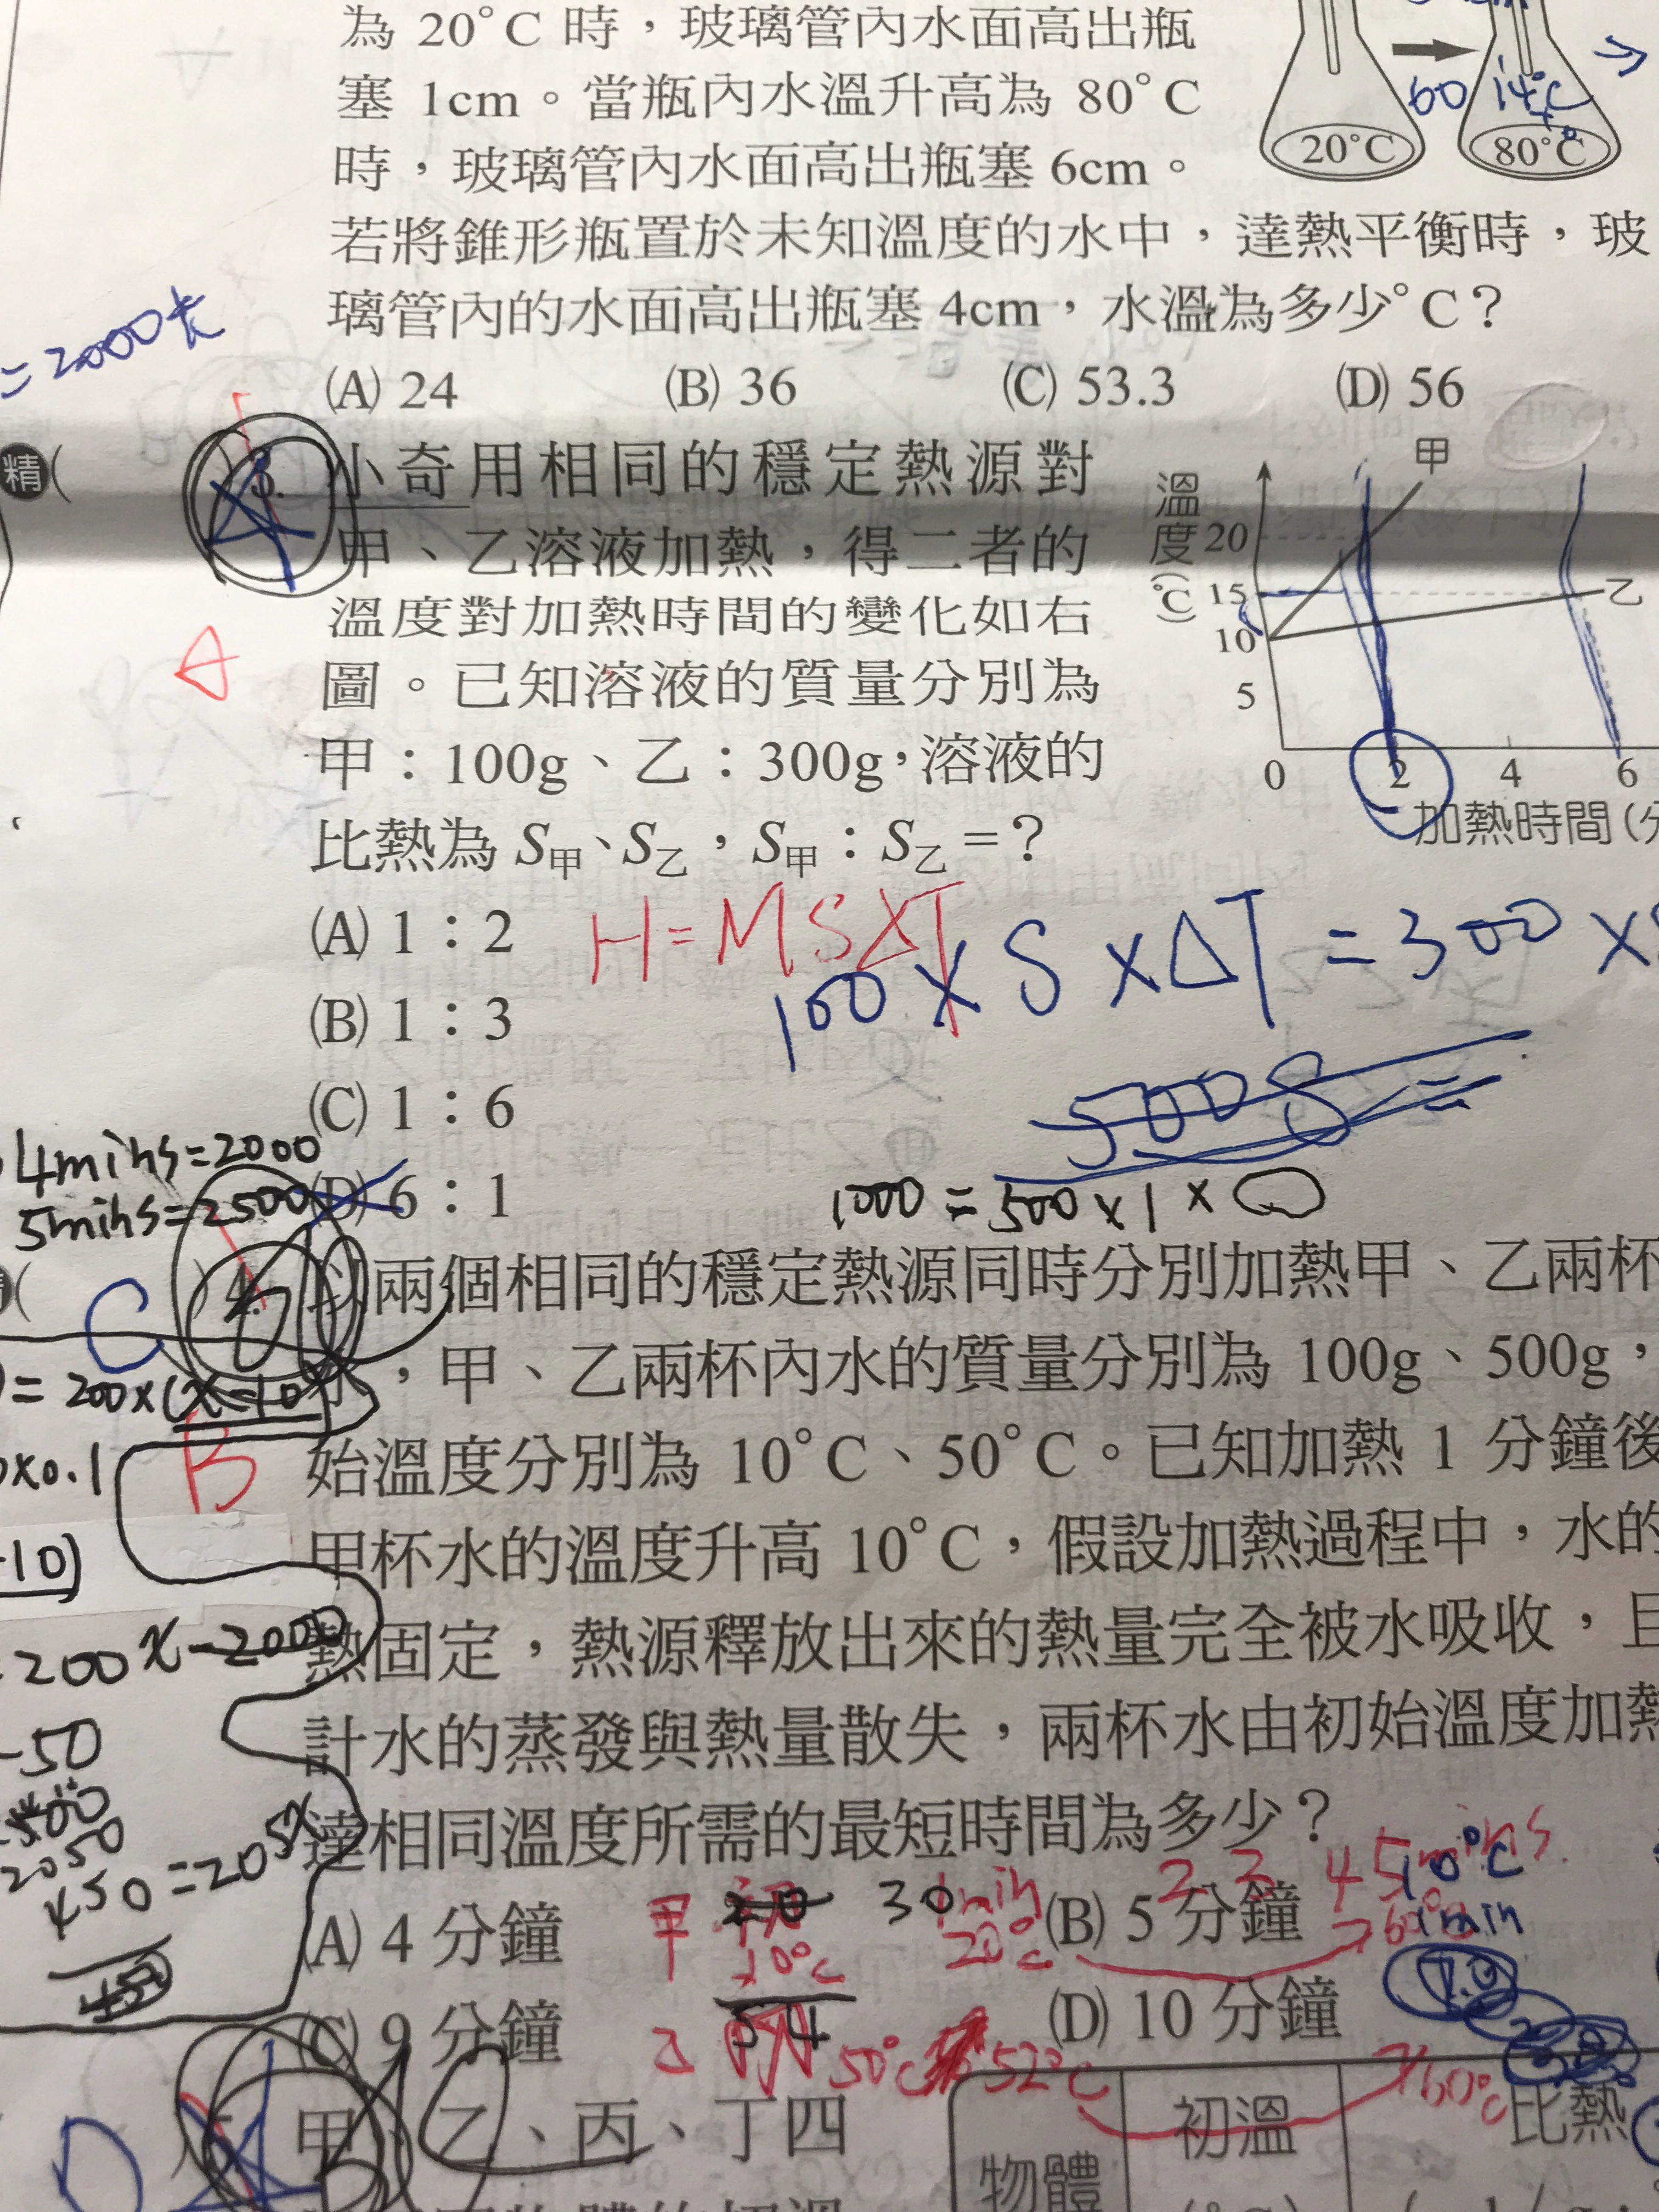 為 20°C 時，玻璃管內水面高出瓶
塞 1cm。當瓶內水溫升高為 80°C
時，玻璃管內水面高出瓶塞 6cm。
若將錐形瓶置於未知溫度的水中，達熱平衡時，玻
璃管內的水面高出瓶塞 4cm，水溫為多少°C？
(A) 24 (B) 36 (C) 53.3 (D) 56
20°C
80°C
60
14°C
=2000卡
精(
3. 小奇用相同的穩定熱源對
甲、乙溶液加熱，得二者的
溫度對加熱時間的變化如右
圖。已知溶液的質量分別為
甲：100g、乙：300g，溶液的
比熱為 S甲、S乙，S甲：S乙=？
(A) 1：2
(B) 1：3
(C) 1：6
(D) 6：1
A
溫度(°C)
甲
20
15
乙
10
5
0 2 4 6
加熱時間(分
H=MSΔT
100×S×ΔT=300×
500S=
1000=500×1×
4mins=2000
5mins=2500
( C )4. 以兩個相同的穩定熱源同時分別加熱甲、乙兩杯
水，甲、乙兩杯內水的質量分別為 100g、500g，
始溫度分別為 10°C、50°C。已知加熱 1 分鐘後
甲杯水的溫度升高 10°C，假設加熱過程中，水的
熱固定，熱源釋放出來的熱量完全被水吸收，且
計水的蒸發與熱量散失，兩杯水由初始溫度加熱
達相同溫度所需的最短時間為多少？
(A) 4 分鐘 (B) 5 分鐘
(C) 9 分鐘 (D) 10 分鐘
B
=200×(x-10
×0.1
-10)
200x-2000
-50
2050
450=205x
甲 初 30 1min
10°C 20°C
60°C
54
乙 50°C 52°C
60°C
45mins
10°C
1min
甲、乙、丙、丁四
物體
初溫
比熱
D